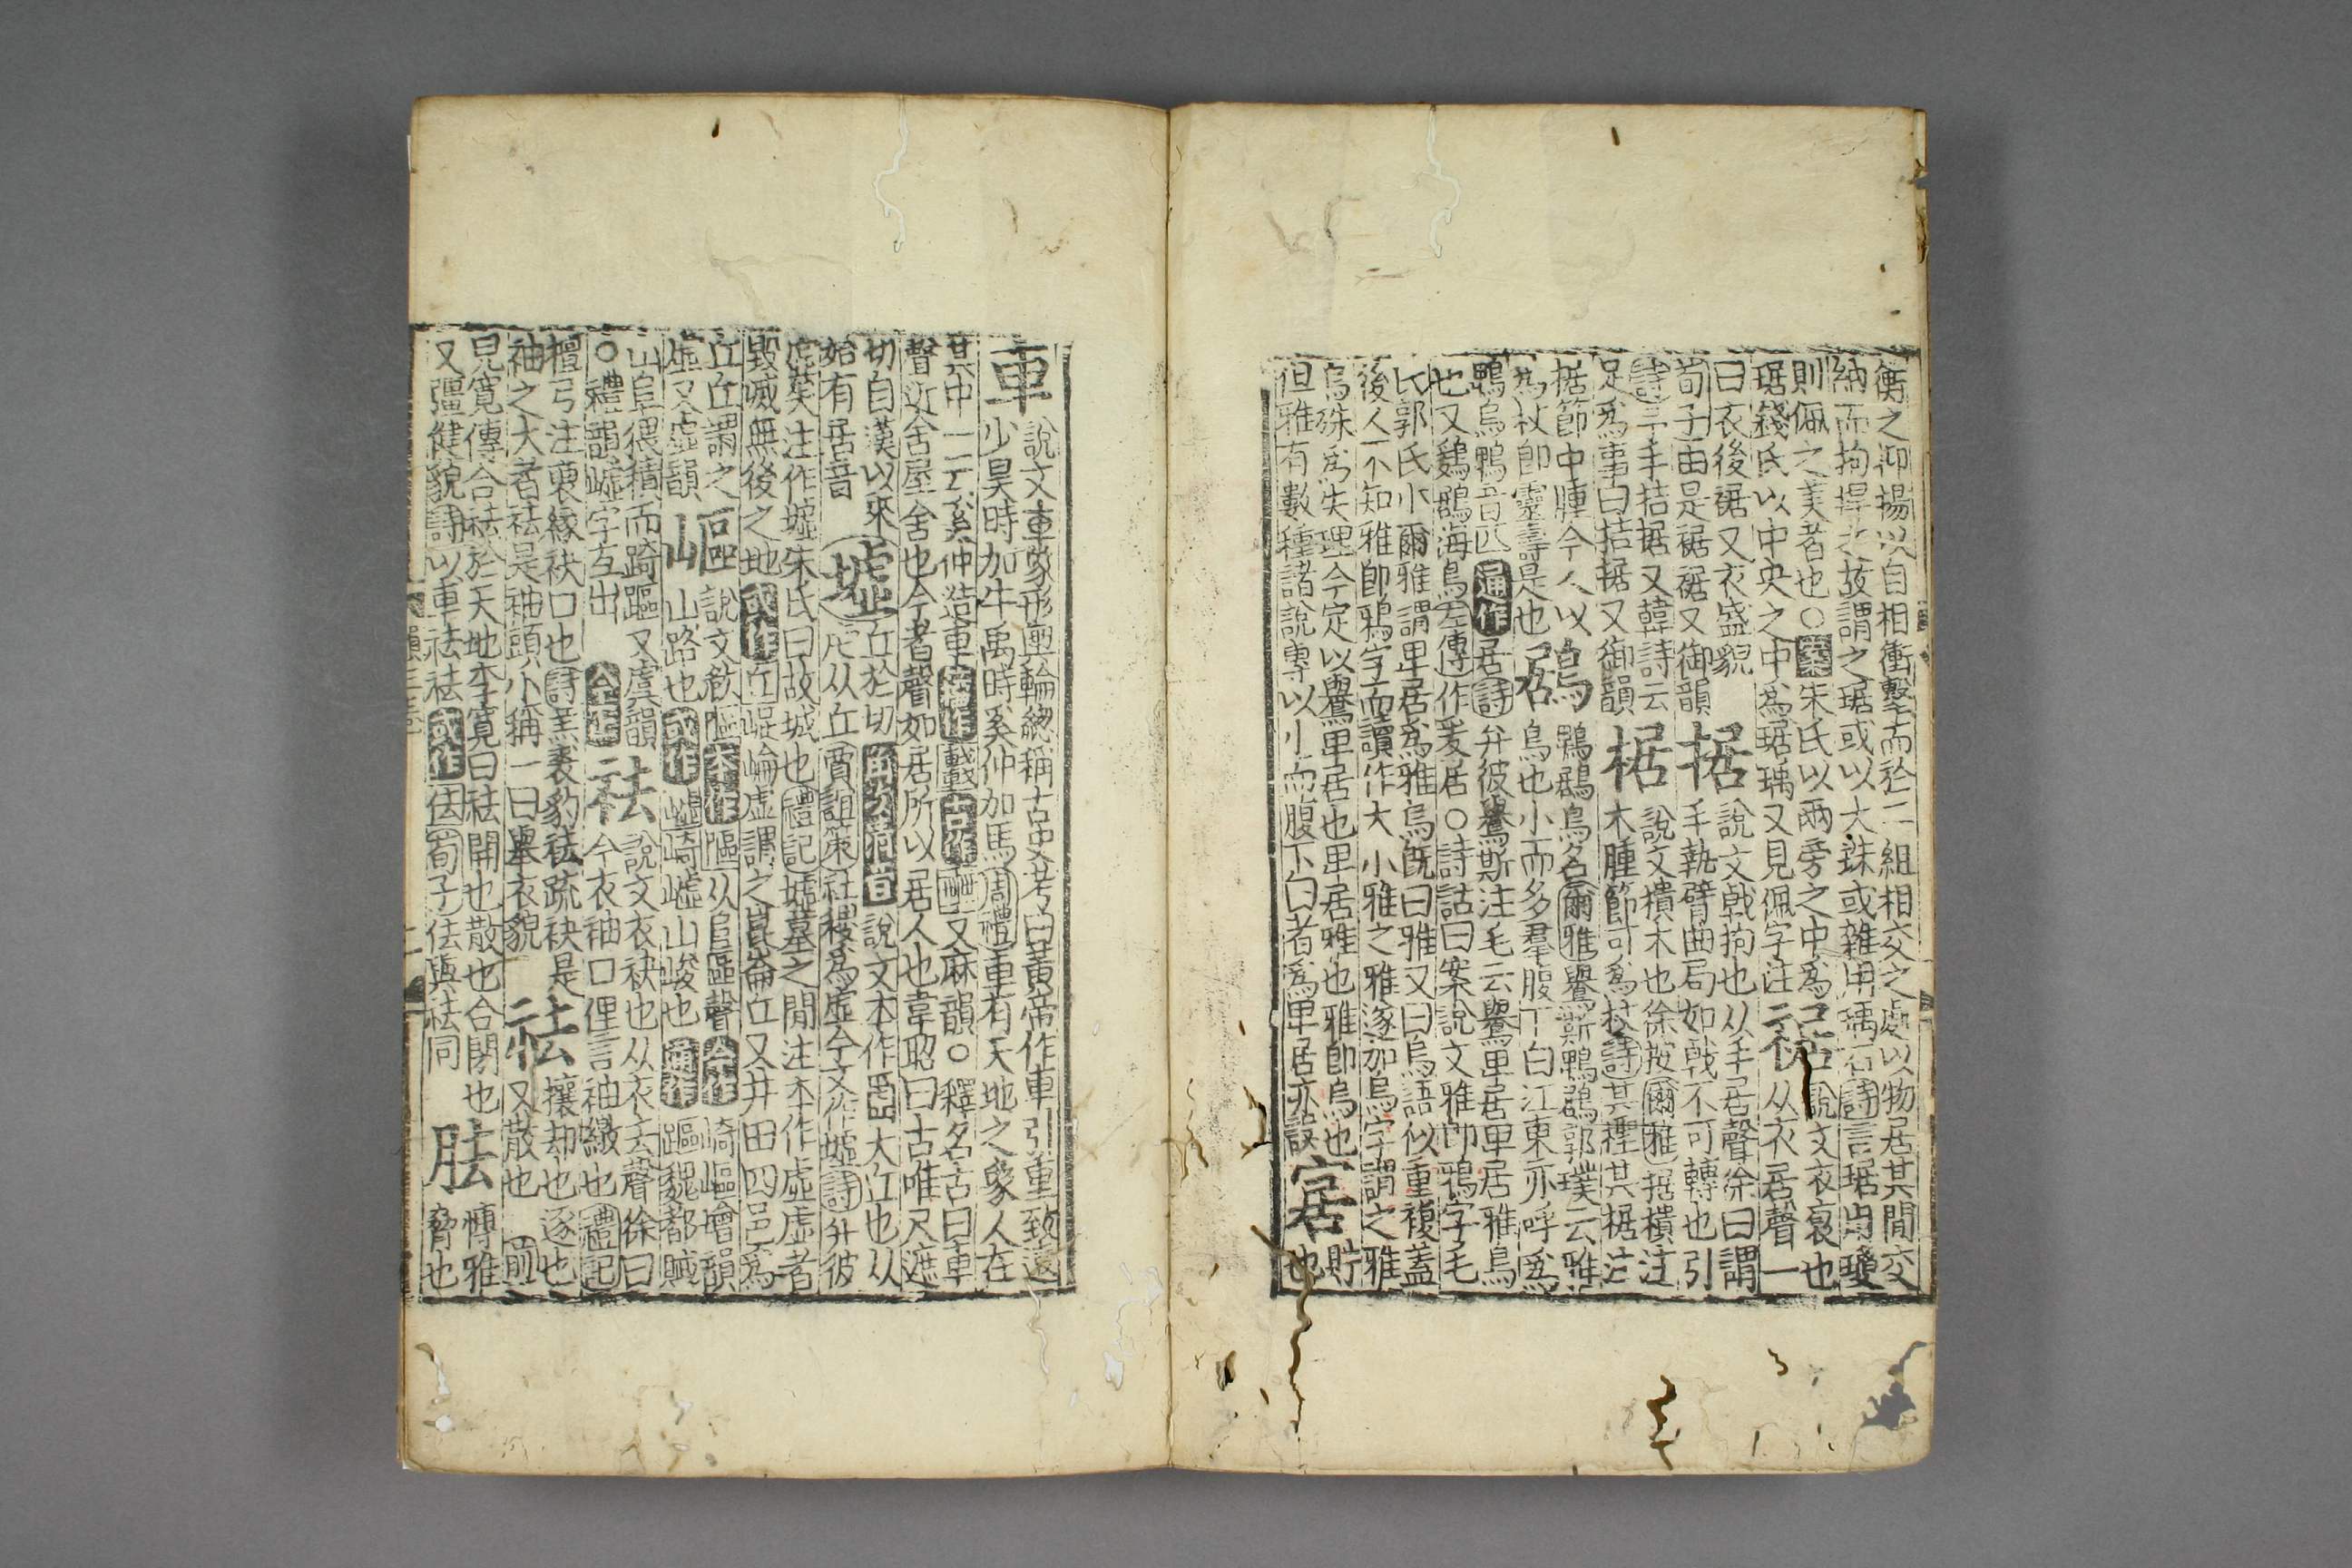 衡之仰揚以自相衝擊而於二組相交之處以物居其間交
納而拘捍之故謂之琚或以大珠或雜用瑀石詩言琚肖瓊
則佩之美者也○案朱氏以兩旁之中爲琚錢氏以中央之中爲琚瑀又見佩字注
裾說文衣裒也从衣居聲一曰衣後裾又衣盛貌荀子由是裾裾又御韻
据說文戟挶也从手居聲徐曰謂手執臂曲局如戟不可轉也引詩予手拮据又韓詩云足爲事曰拮据又御韻
椐說文樻木也徐按爾雅椐樻注木腫節可爲杖詩其檉其椐注椐節中腫今人以爲杖即靈壽是也
鶋鴨鶋鳥名爾雅鸒斯鴨鶋郭璞云雅烏也小而多羣腹下白江東亦呼爲鴨烏鴨音匹通作居詩弁彼鸒斯注毛云鸒卑居卑居雅烏
也又鷄鶋海鳥左傳作爰居○詩詁曰案說文雅即鴉字毛
氏郭氏小爾雅謂卑居爲雅烏旣曰雅又曰烏語似重複蓋
後人不知雅即鴉字而讀作大小雅之雅遂加烏字謂之雅
烏殊爲失理今定以鸒卑居也卑居雅也雅即烏也
但雅有數種諸說專以小而腹下白者爲卑居亦誤
㝒貯也
車說文車象形輿輪緫稱古史考曰黃帝作車引重致遠
少昊時加牛禹時奚仲加馬周禮車有天地之象人在
其中一云奚仲造車又麻韻○釋名古曰車
聲近舍屋舍也今者聲如居所以居人也韋昭曰古唯尺遮
切自漢以來始有居音
墟丘於切說文本作大丘也从
虍从丘賈誼策社稷爲虛今文作墟詩升彼
虛矣注作墟朱氏曰故城也禮記墟墓之閒注本作虛虛者
毀滅無後之地或作丘崐崘虛謂之崑崙丘又井田四邑爲
丘丘謂之虛又虛韻
嶇說文山路也或作嶇崎嶇山峻也通作
山阜猥積而踦䧢又虞韻
○禮韻嶇字互出
袪說文衣袂也从衣去聲徐曰
今衣袖口俚言袖繳也禮記
檀弓注裒緣袂口也詩羔裘豹袪疏袂是
袖之大者袪是袖頭小稱一曰舉衣貌
祛攘却也逐也又散也前
兒寬傳合祛於天地李寬曰祛開也散也合閉也
又彊健貌詩以車袪袪或作佉荀子佉與祛同
胠博雅脅也